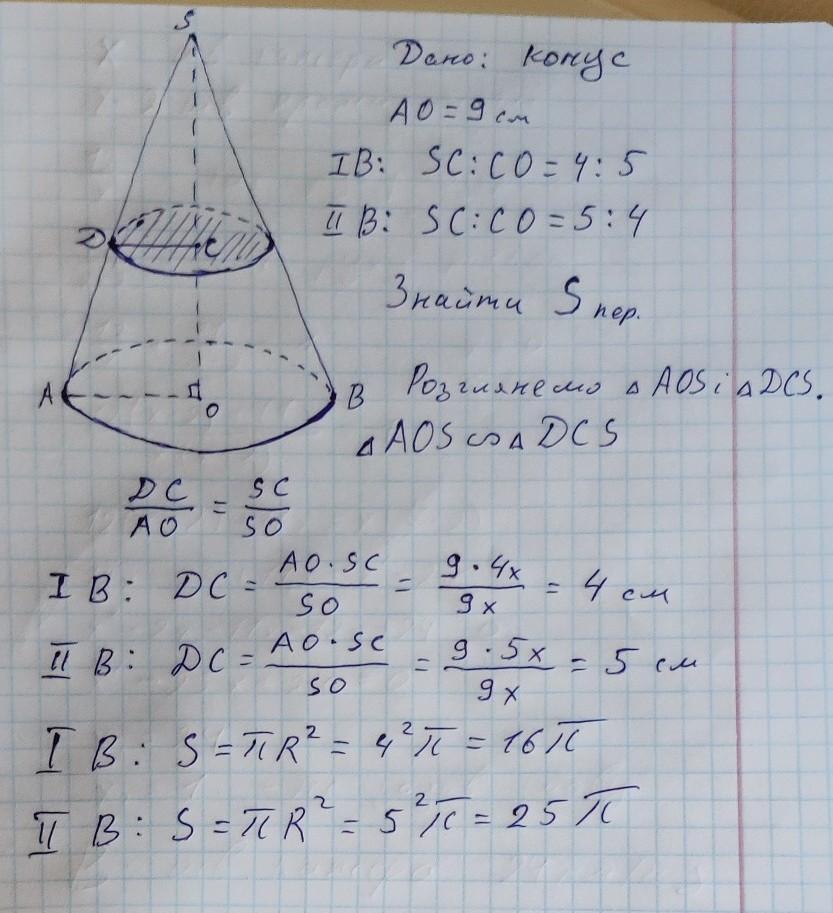 S
Дано: конус
AO = 9 см
I В: SC : CO = 4 : 5
II В: SC : CO = 5 : 4
D C
Знайти S пер.
A O B
Розглянемо △ AOS і △ DCS.
△ AOS ∽ △ DCS
DC/AO = SC/SO
I В: DC = AO · SC/SO = 9 · 4x/9x = 4 см
II В: DC = AO · SC/SO = 9 · 5x/9x = 5 см
I В: S = πR² = 4²π = 16π
II В: S = πR² = 5²π = 25π